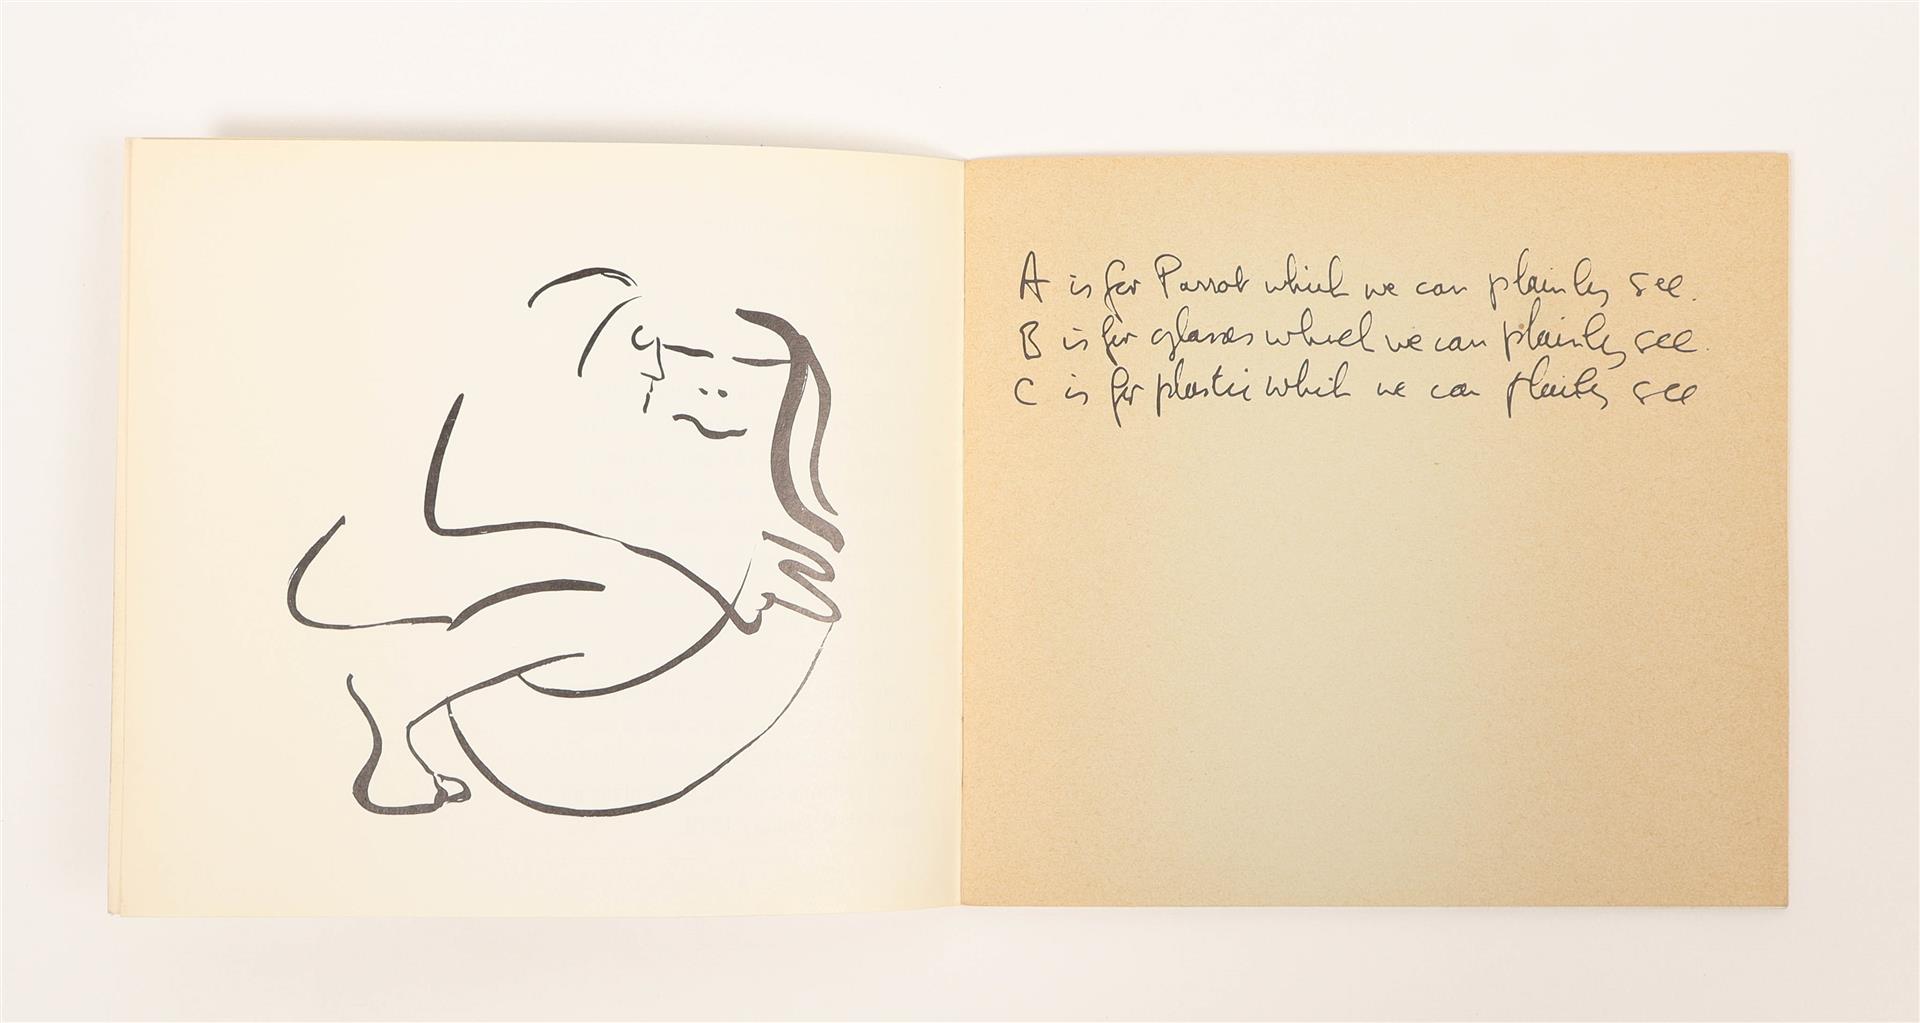 A is for Parrot which we can plainly see.
B is for glasses which we can plainly see.
C is for plastic which we can plainly see